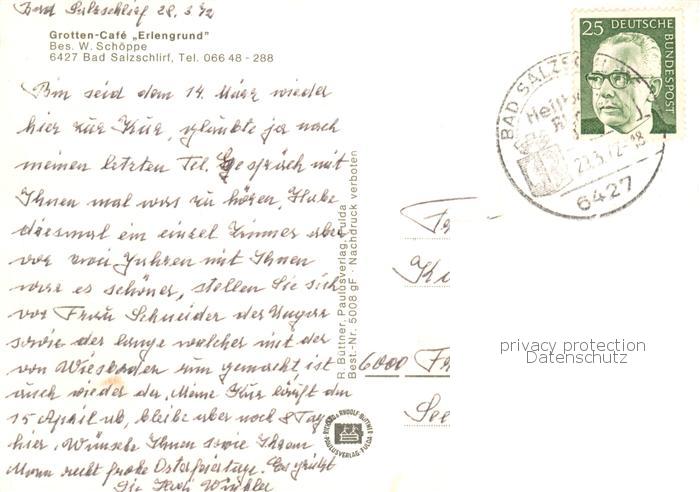 Bad Salzschlirf 28.3.72
Grotten-Café „Erlengrund"
Bes. W. Schöppe
6427 Bad Salzschlirf, Tel. 066 48 - 288
Bin seid dem 14. März wieder
hier zur Kur, glaubte ja nach
meinen letzten Tel. Gespräch mit
Ihnen mal was zu hören. Habe
diesmal ein einzel Zimmer aber
vor zwei Jahren mit Ihnen
war es schöner, stellen Sie sich
vor Frau Schneider der Ungar
sowie der lange welcher mit der
von Wiesbaden rum gemacht ist
auch wieder da. Meine Kur läuft den
15 April ab, bleibe aber noch 8 Tage
hier. Wünsche Ihnen sowie Ihrem
Mann recht frohe Osterfeiertage. Es grüßt
Sie Winkler
R. Büttner, Paulusverlag, Fulda
Best.-Nr. 5008 gF · Nachdruck verboten
RICHARD & RUDOLF BÜTTNER
PAULUSVERLAG · FULDA
25 DEUTSCHE
BUNDESPOST
BAD SALZSCHLIRF
Heilb
6427
6000
privacy protection
Datenschutz